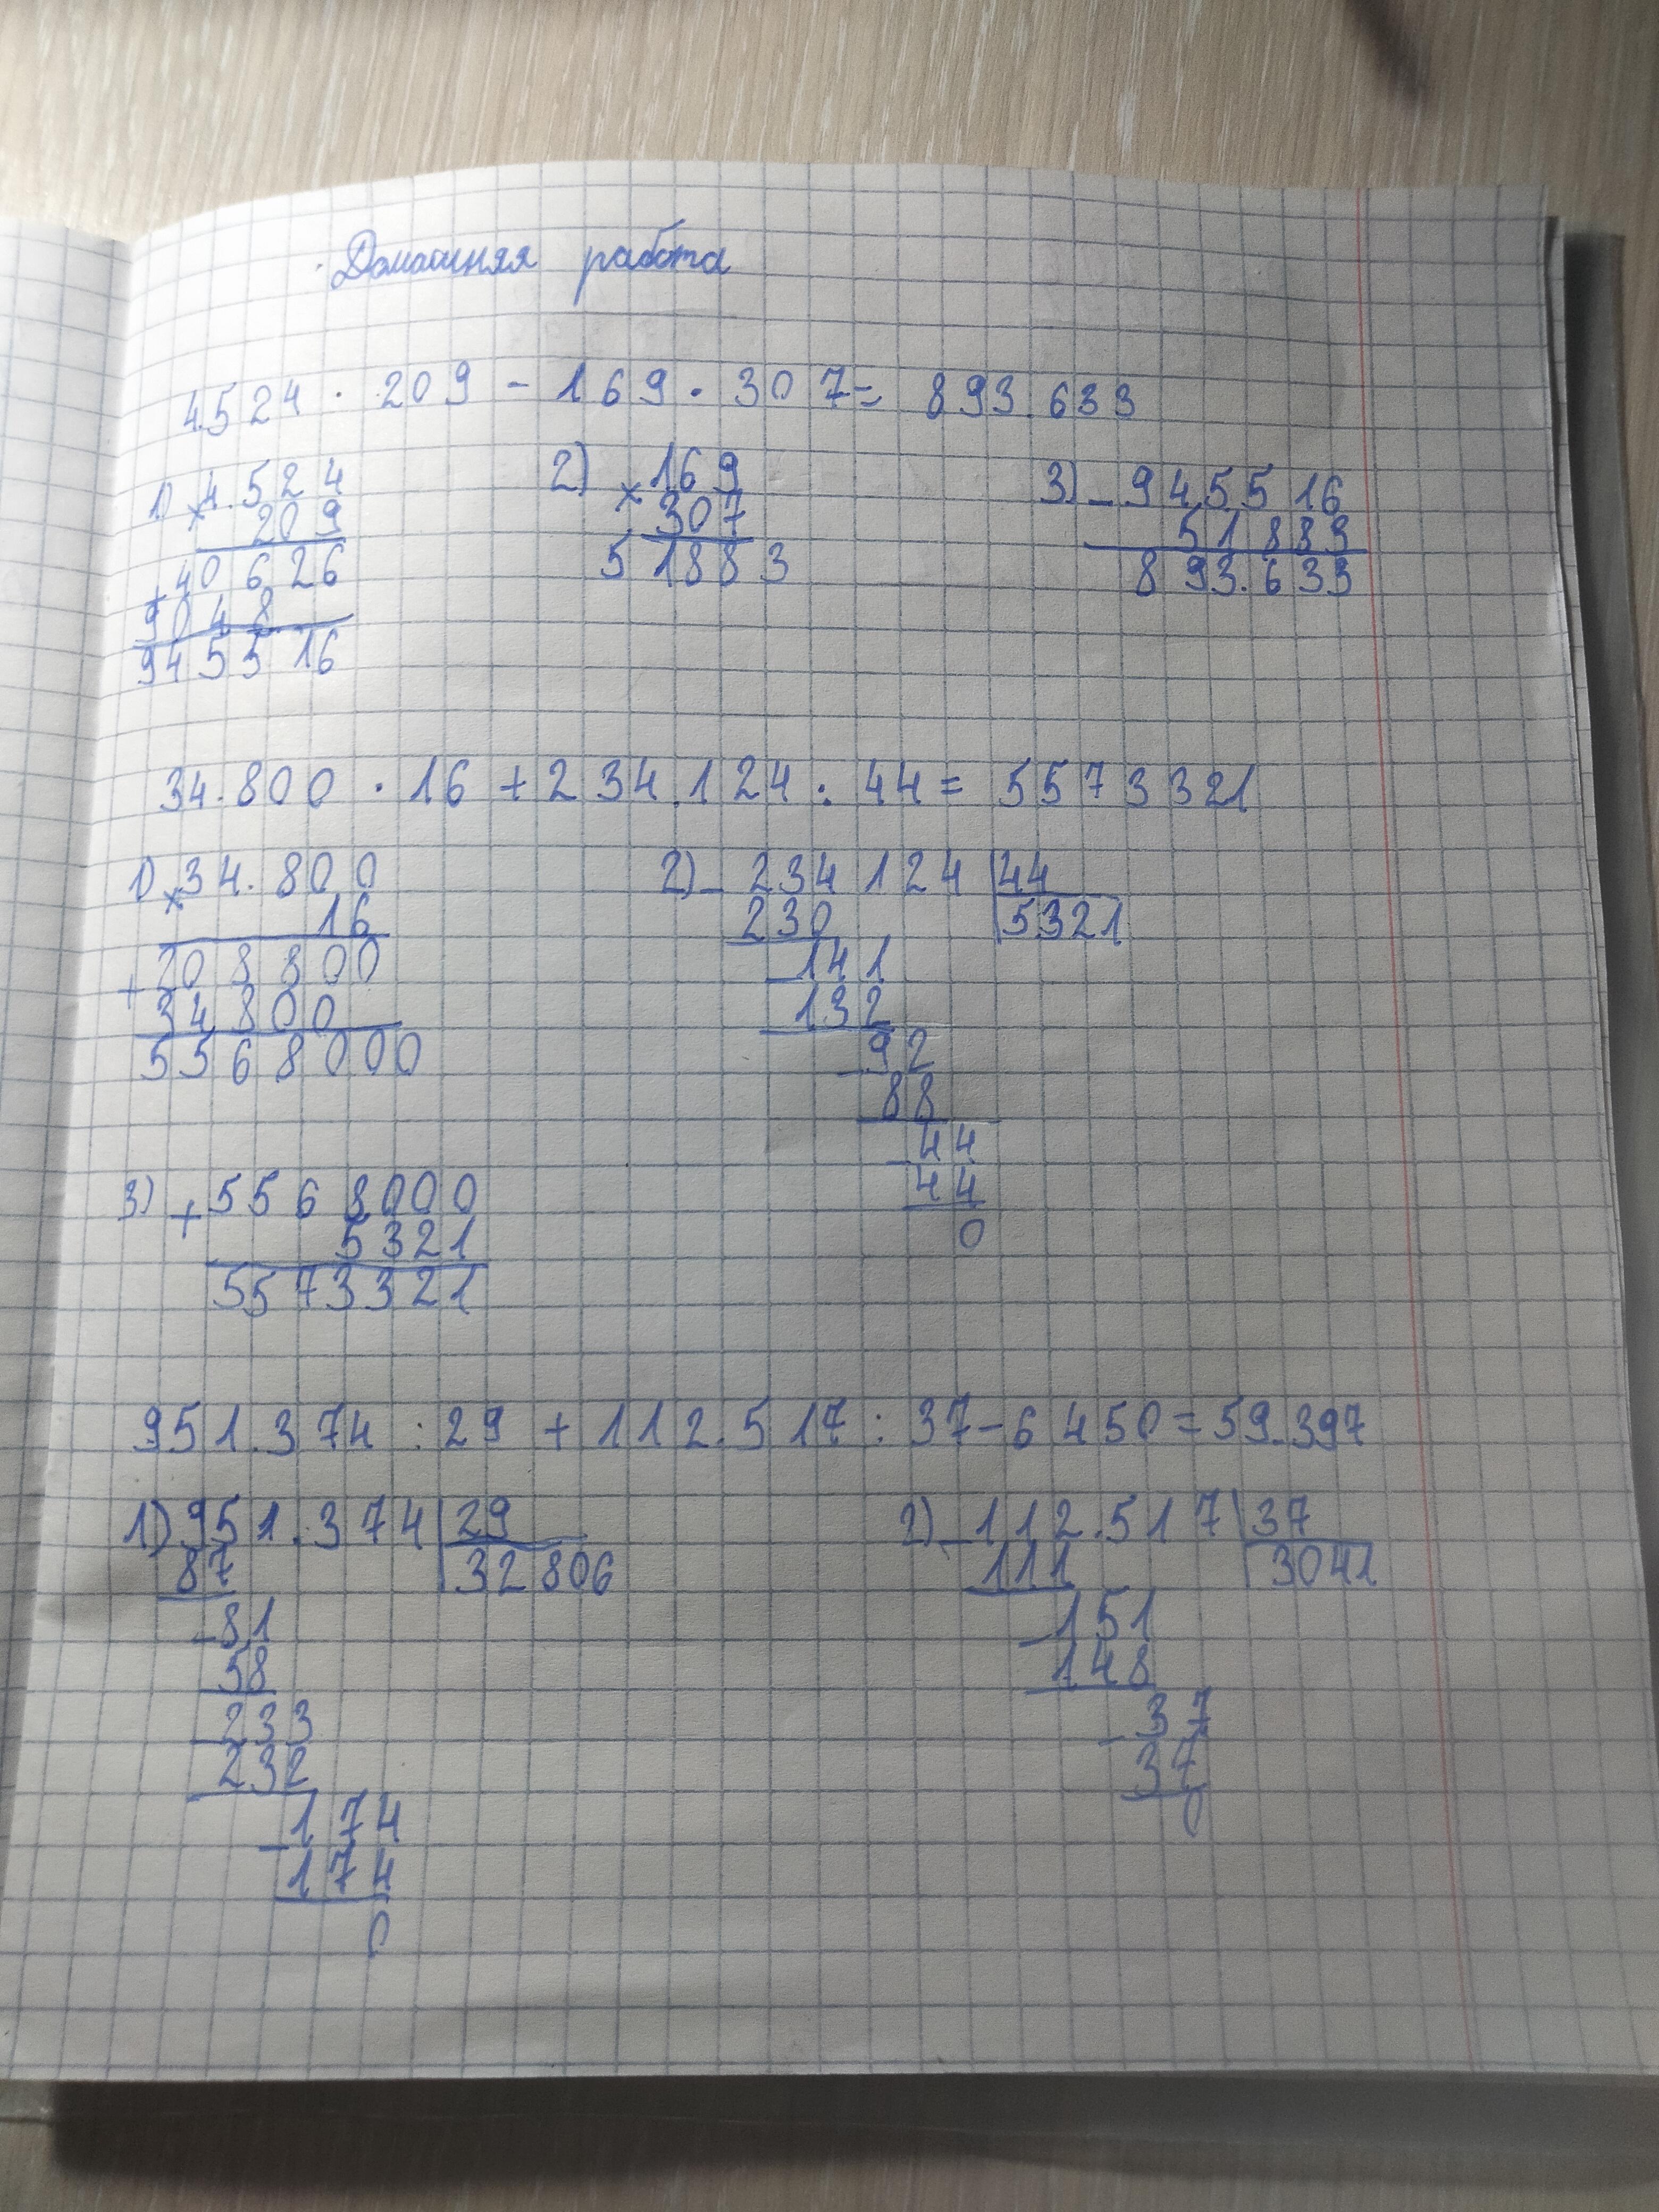 Домашняя работа
4.524 · 209 - 169 · 307 = 893.633
1) × 4.524
209
+ 40626
9048
945516
2) × 169
307
51883
3) - 945516
51883
893.633
34.800 · 16 + 234.124 : 44 = 5573321
1) × 34.800
16
+ 208800
34800
5568000
2) - 234124 | 44
230 | 5321
- 141
132
- 92
88
- 44
44
0
3) + 5568000
5321
5573321
951.374 : 29 + 112.517 : 37 - 6450 = 59.397
1) 951.374 | 29
87 | 32806
- 81
58
- 233
232
- 174
174
0
2) - 112.517 | 37
111 | 3041
- 151
148
- 37
37
0